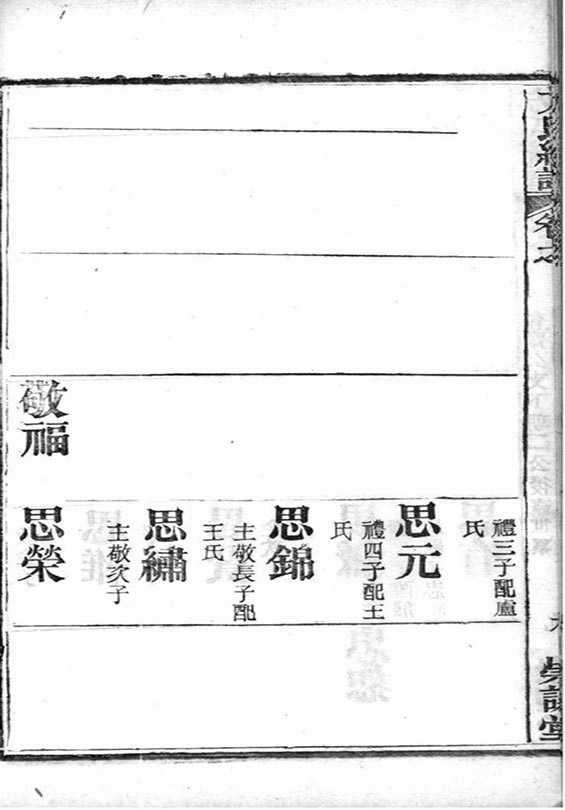 卷之
禮三子配廬
氏
思元
禮四子配王
氏
思錦
主敬長子配
王氏
思繡
主敬次子
敬福
思榮